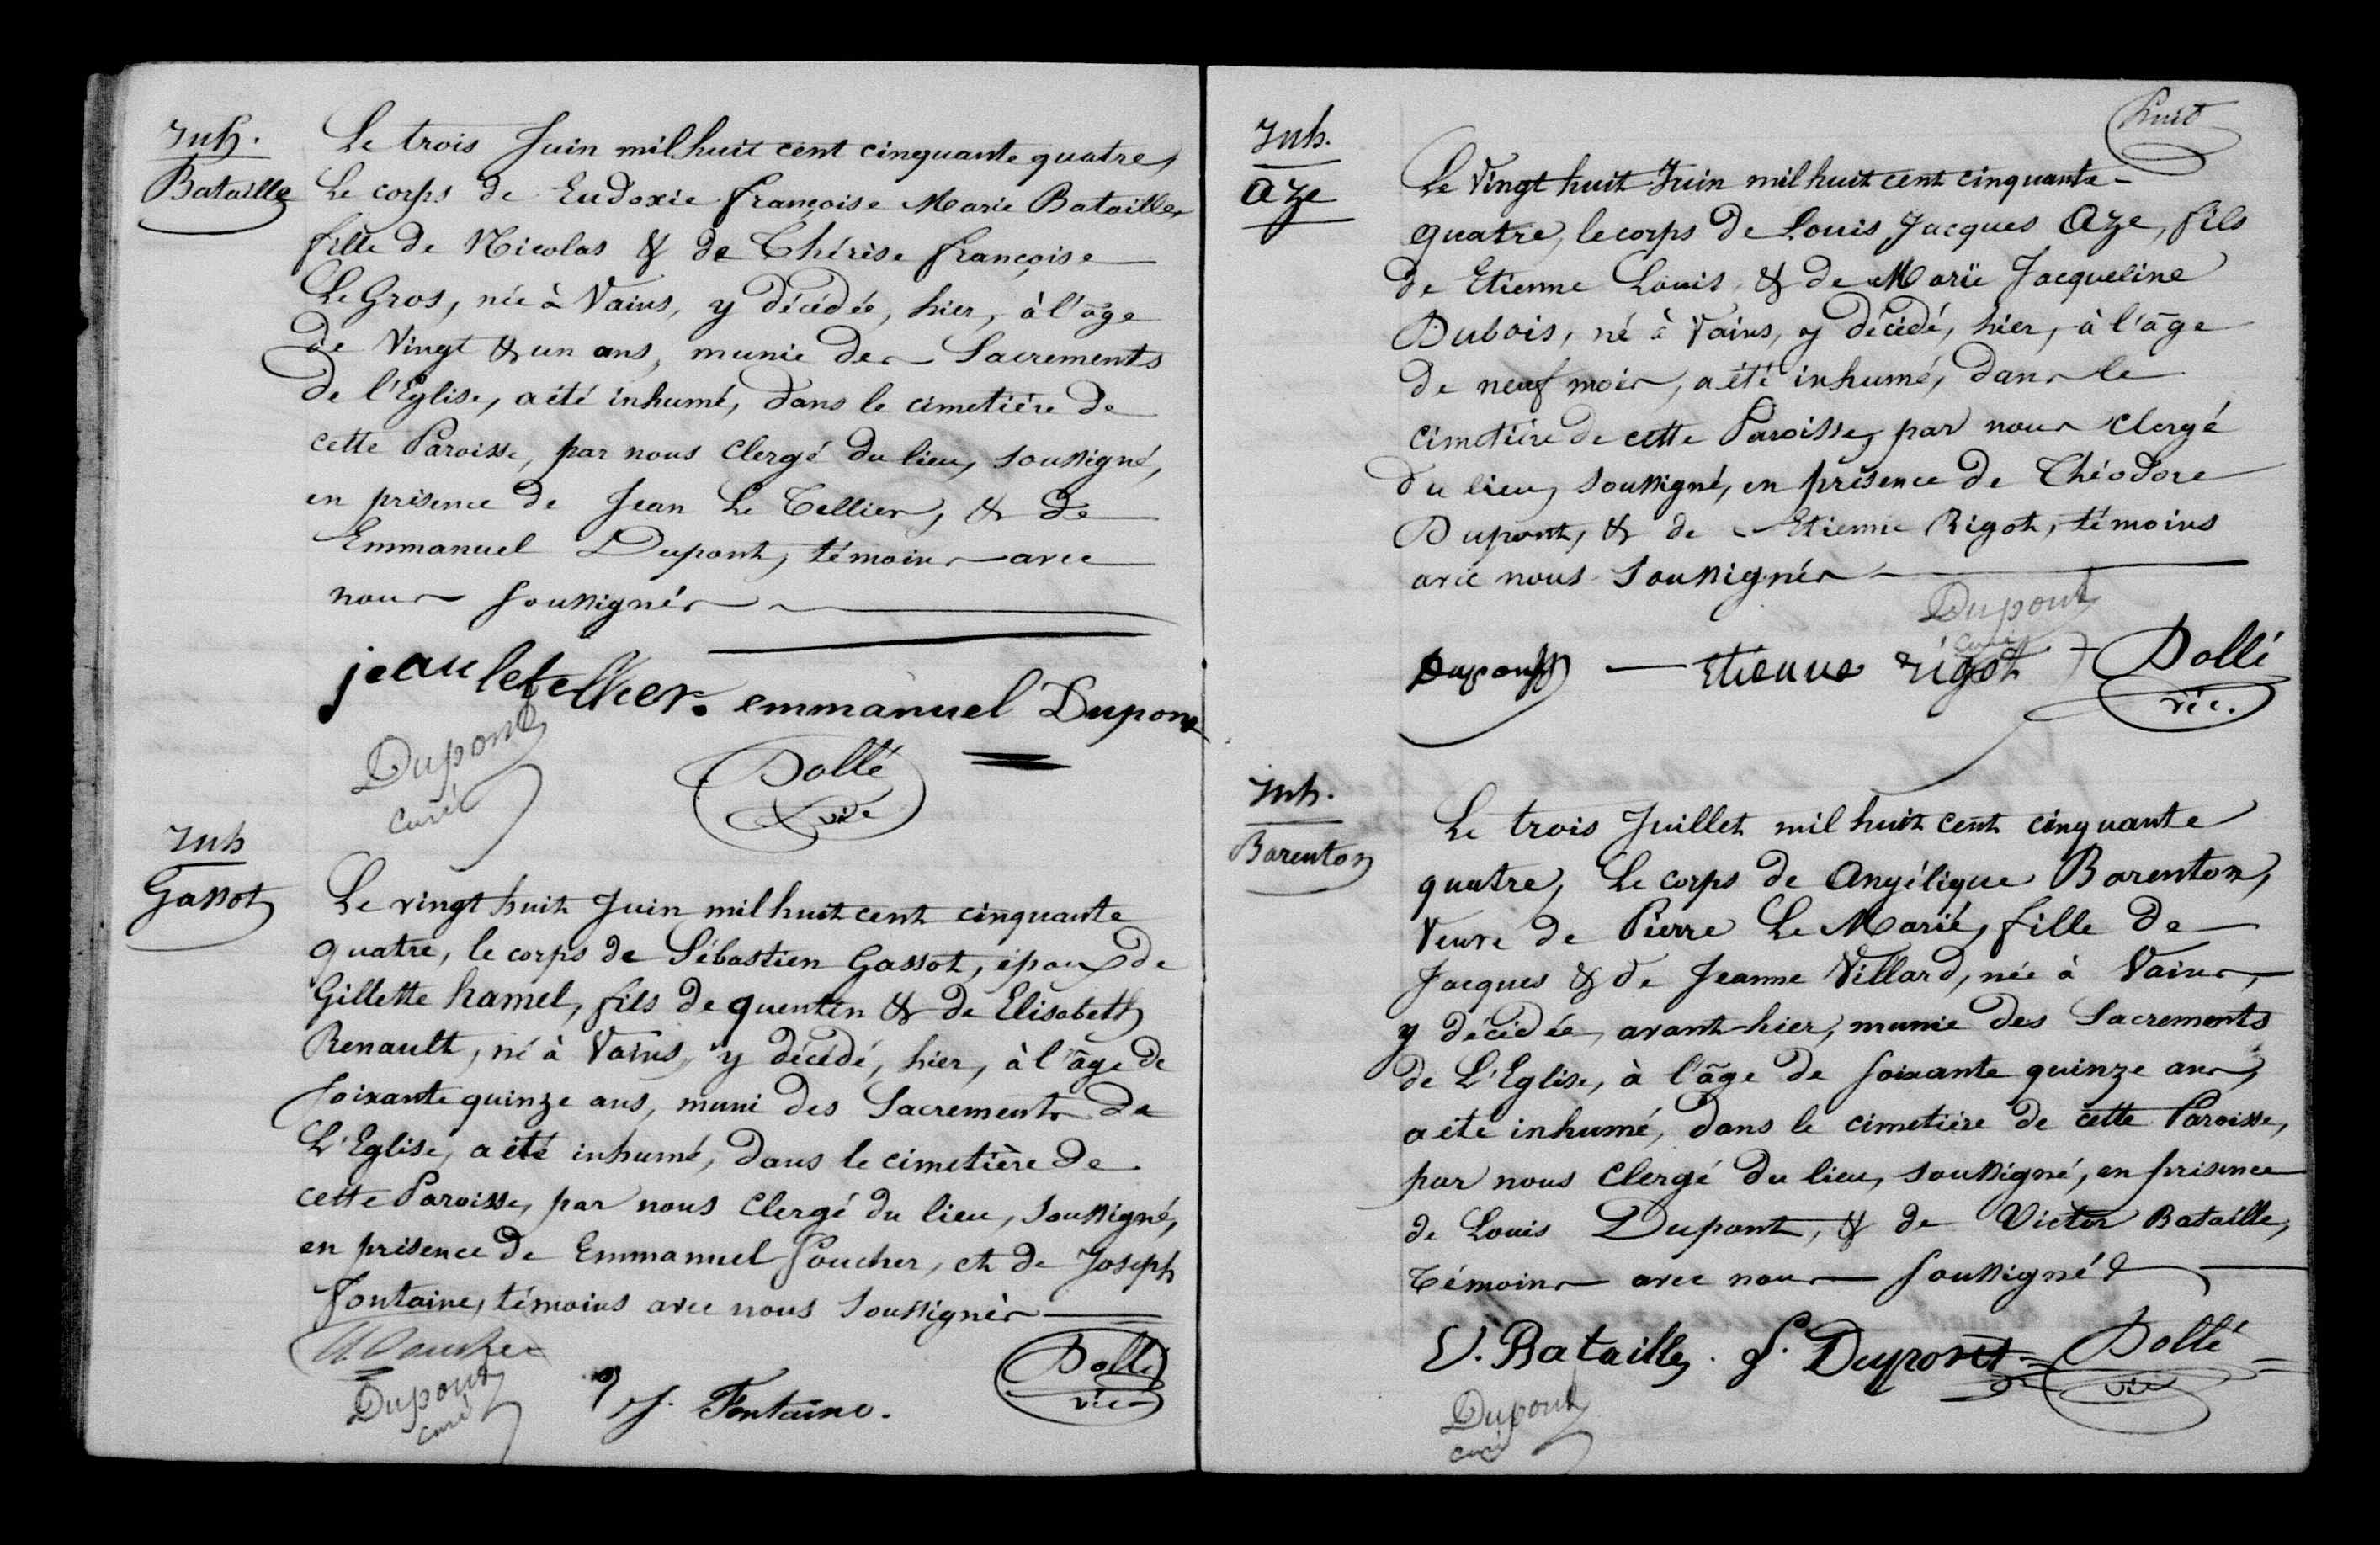 Inh.
Bataille
Le trois Juin mil huit cent cinquante quatre,
Le corps de Eudoxie françoise Marie Bataille,
fille de Nicolas & de Thérèse françoise
Le Gros, née à Vains, y décédée, hier, à l'âge
de Vingt & un ans, munie des Sacrements
de l'Eglise, a été inhumé, dans le cimetière de
cette Paroisse, par nous Clergé du lieu, soussigné,
en présence de Jean Le Tellier, & de
Emmanuel Dupont, témoins avec
nous soussignés
jean letellier. emmanuel Dupont
Dupont
curé
Dollé
vic
Inh
Gassot
Le vingt huit Juin mil huit cent cinquante
quatre, le corps de Sébastien Gassot, époux de
Gillette hamel, fils de quentin & de Elisabeth
Renault, né à Vains, y décédé, hier, à l'âge de
soixante quinze ans, muni des Sacrements de
L'Eglise, a été inhumé, dans le cimetière de
cette Paroisse, par nous Clergé du lieu, soussigné,
en présence de Emmanuel foucher, et de Joseph
fontaine, témoins avec nous soussignés
Dupont
curé
J. Fontaine.
Dollé
vic
huit
Inh.
Aze
Le Vingt huit Juin mil huit cent cinquante
quatre, le corps de Louis Jacques Aze, fils
de Etienne Louis, & de Marie Jacqueline
Dubois, né à Vains, y décédé, hier, à l'âge
de neuf mois, a été inhumé, dans le
cimetière de cette Paroisse, par nous Clergé
du lieu, soussigné, en présence de Théodore
Dupont, & de Etienne Rigot, témoins
avec nous soussignés
Dupont
curé
Dupont — Etienne rigot
Dollé
vic.
Inh.
Barenton
Le trois Juillet mil huit cent cinquante
quatre, Le corps de Angélique Barenton,
Veuve de Pierre Le Marié, fille de
Jacques & de Jeanne Villard, née à Vains,
y décédée, avant-hier, munie des Sacrements
de L'Eglise, à l'âge de soixante quinze ans,
a été inhumé, dans le cimetière de cette Paroisse,
par nous Clergé du lieu, soussigné, en présence
de Louis Dupont, & de Victor Bataille,
Témoins avec nous soussignés
V. Bataille. L. Dupont
Dollé
vic
Dupont
curé